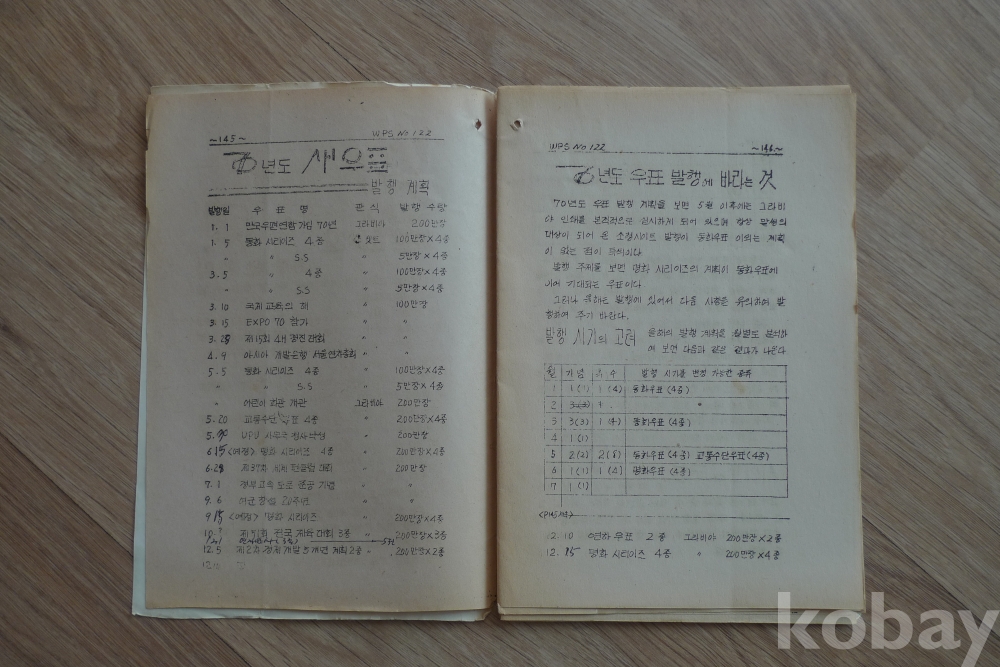 ~145~ WPS No 122
70년도 새우표
발행 계획
발행일 우표명 판식 발행수량
1. 1 만국우편연합 가입 70년 그라비아 200만장
1. 5 동화 시리이즈 4종 100만장×4종
〃 〃 S.S 〃 5만장×4종
3. 5 〃 4종 〃 100만장×4종
〃 〃 S.S 〃 5만장×4종
3. 10 국제 교육의 해 〃 100만장
3. 15 EXPO 70 참가 〃 〃
3. 28 제15회 4H 경진대회 〃 〃
4. 9 아시아 개발은행 서울연차총회 〃 〃
5. 5 동화 시리이즈 4종 〃 100만장×4종
〃 〃 S.S 〃 5만장×4종
〃 어린이 회관 개관 그라비아 200만장
5. 20 교통수단 우표 4종 〃 200만장×4종
UPU 사무국 청사낙성 〃 200만장
6.15 <예정> 명화 시리이즈 4종 〃 200만장×4종
6.28 제37회 세계 펜클럽 대회 〃 200만장
7. 1 경부고속 도로 준공 기념 〃 〃
9. 6 여군 창설 20주년 〃 〃
9.15 <예정> 명화 시리이즈 200만장×4종
제51회 전국 체육 대회 3종 〃 200만장×3종
12. 5 제2차 경제 개발 5개년 계획 2종 〃 200만장×2종
WPS No 122 ~146~
70년도 우표 발행에 바라는 것
70년도 우표 발행 계획을 보면 5월 이후에는 그라비
야 인쇄를 본격적으로 실시하게 되어 있으며 항상 말썽의
대상이 되어 온 소형시이트 발행이 동화우표 이외는 계획
이 없는 점이 특색이다
발행 주제를 보면 명화 시리이즈의 계획이 동화우표에
이어 기대되는 우표이다.
그러나 올해는 발행에 있어서 다음 사항은 유의하여 발
행하여 주기 바란다.
발행 시기의 고려 올해의 발행 계획을 월별로 분석하
여 보면 다음과 같은 결과가 나온다
월 기념 특수 발행 시기를 변경 가능한 종류
1 1(1) 1(4) 동화우표 (4종)
2
3 3(3) 1(4) 동화우표 (4종)
4 1(1)
5 2(2) 2(8) 동화우표 (4종) 교통수단우표 (4종)
6 1(1) 1(4) 명화우표 (4종)
7 1(1)
12. 10 연하우표 2종 그라비야 200만장×2종
12. 15 명화 시리이즈 4종 〃 200만장×4종
kobay